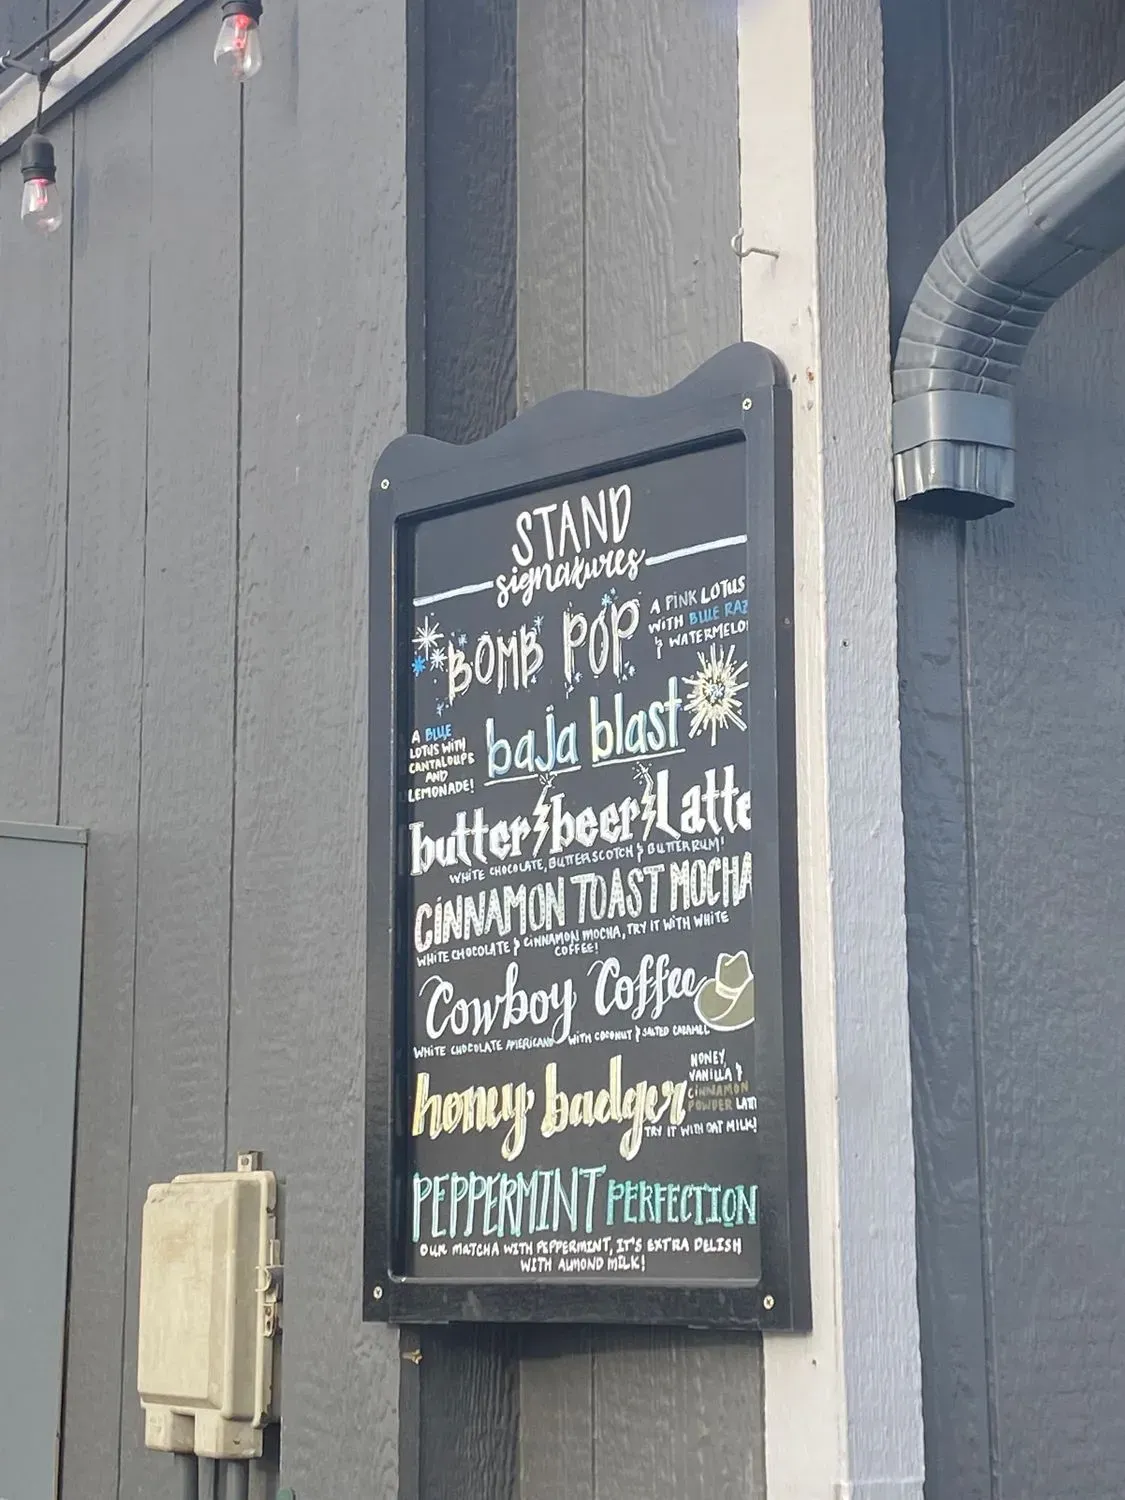 STAND
signatures
BOMB POP
A PINK LOTUS
WITH BLUE RAZ
& WATERMELO
baja blast
A BLUE
LOTUS WITH
CANTALOUPE
AND
LEMONADE!
butter beer Latte
WHITE CHOCOLATE, BUTTERSCOTCH & BUTTER RUM!
CINNAMON TOAST MOCHA
WHITE CHOCOLATE & CINNAMON MOCHA, TRY IT WITH WHITE
COFFEE!
Cowboy Coffee
WHITE CHOCOLATE AMERICANO WITH COCONUT & SALTED CARAMEL
honey badger
HONEY,
VANILLA &
CINNAMON
POWDER LATT
TRY IT WITH OAT MILK!
PEPPERMINT PERFECTION
OUR MATCHA WITH PEPPERMINT, IT'S EXTRA DELISH
WITH ALMOND MILK!